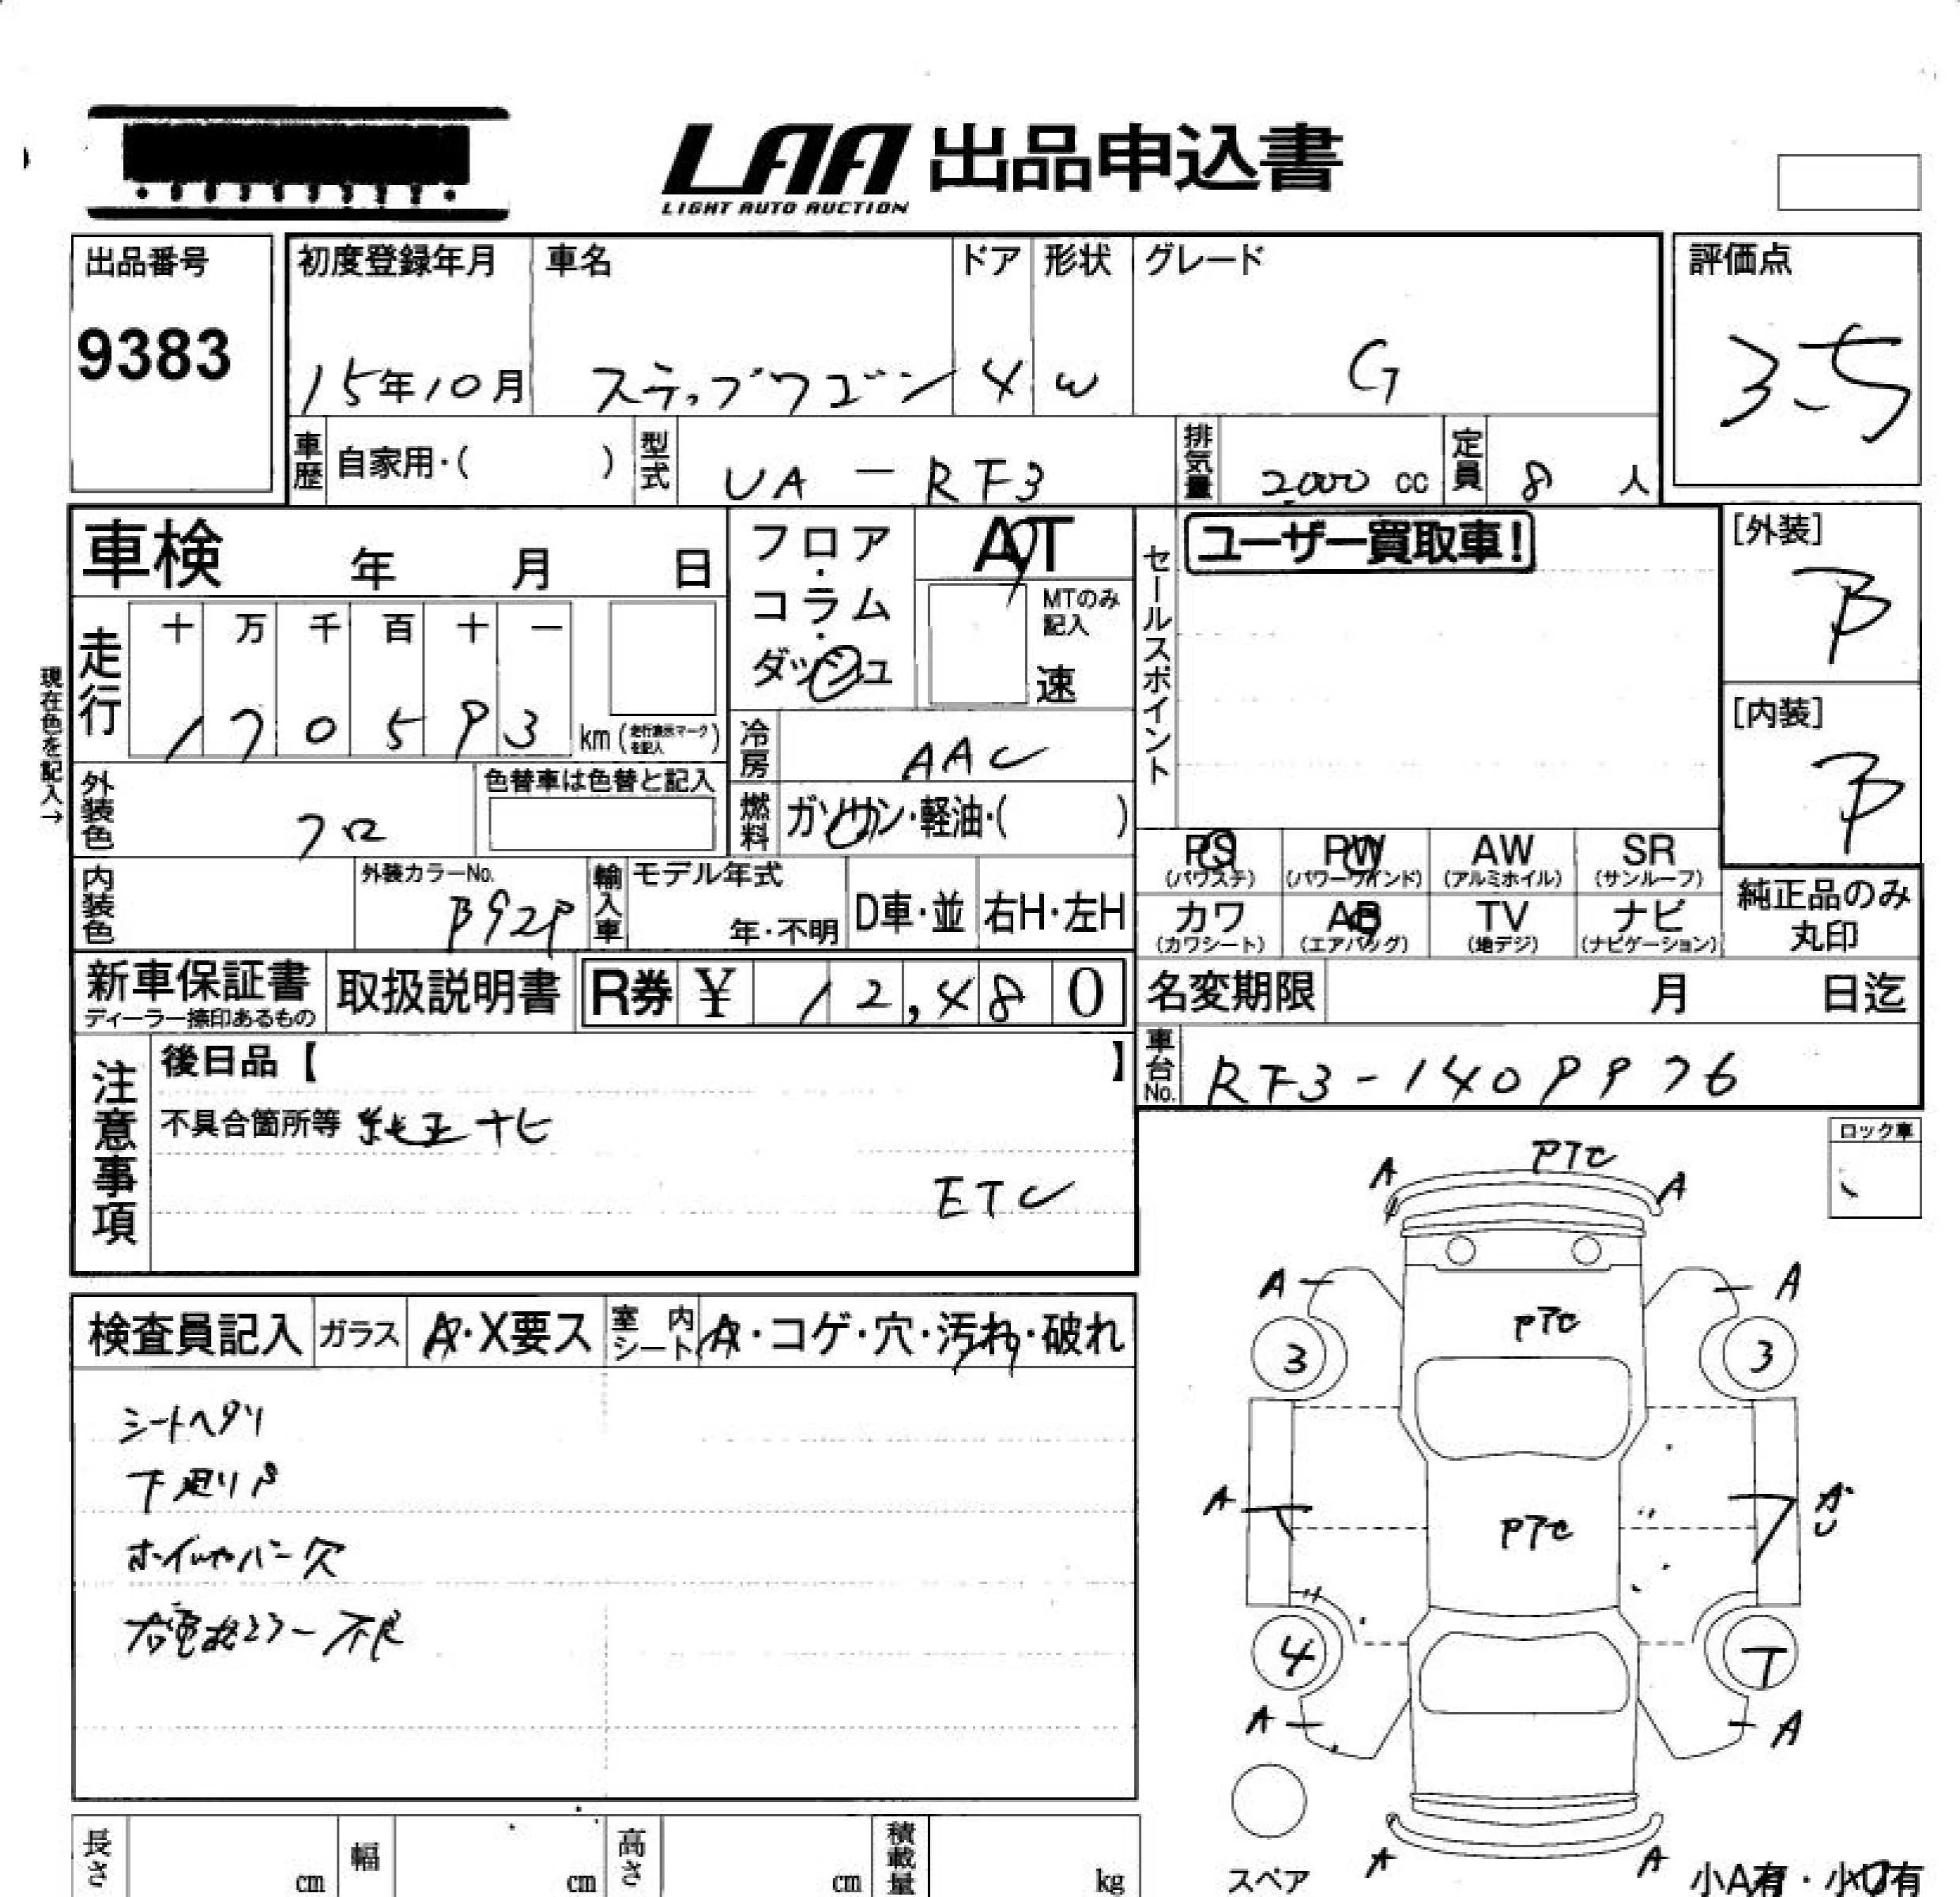 LAA 出品申込書
LIGHT AUTO AUCTION
出品番号
9383
初度登録年月
15年10月
車名
ステップワゴン
ドア
4
形状
W
グレード
G
評価点
3.5
車歴
自家用・( )
型式
UA-RF3
排気量
2000 cc
定員
8 人
車検 年 月 日
フロア・コラム・ダッシュ
AT
MTのみ記入
速
セールスポイント
ユーザー買取車!
[外装]
B
[内装]
B
現在色を記入→
走行
十 万 千 百 十 一
1 7 0 5 9 3 km (走行表示マークを記入)
冷房
AAC
燃料
ガソリン・軽油・( )
外装色
クロ
色替車は色替と記入
内装色
外装カラーNo.
B92P
輸入車
モデル年式
年・不明
D車・並
右H・左H
PS (パワステ)
PW (パワーウインド)
AW (アルミホイル)
SR (サンルーフ)
カワ (カワシート)
AB (エアバッグ)
TV (地デジ)
ナビ (ナビゲーション)
純正品のみ丸印
新車保証書
ディーラー捺印あるもの
取扱説明書
R券 ¥ 12,480
名変期限 月 日迄
車台No.
RF3-1409976
注意事項
後日品【 】
不具合箇所等 純正ナビ
ETC
ロック車
検査員記入
ガラス
A・X要ス
室内シート
A・コゲ・穴・汚れ・破れ
シートヘタリ
下廻りS
ホイルカバー欠
右電格ミラー不良
A PTC A
A A
PTC
3 3
A
PTC
4 T
A A
A A
スペア
小A有・小U有
長さ cm
幅 cm
高さ cm
積載量 kg